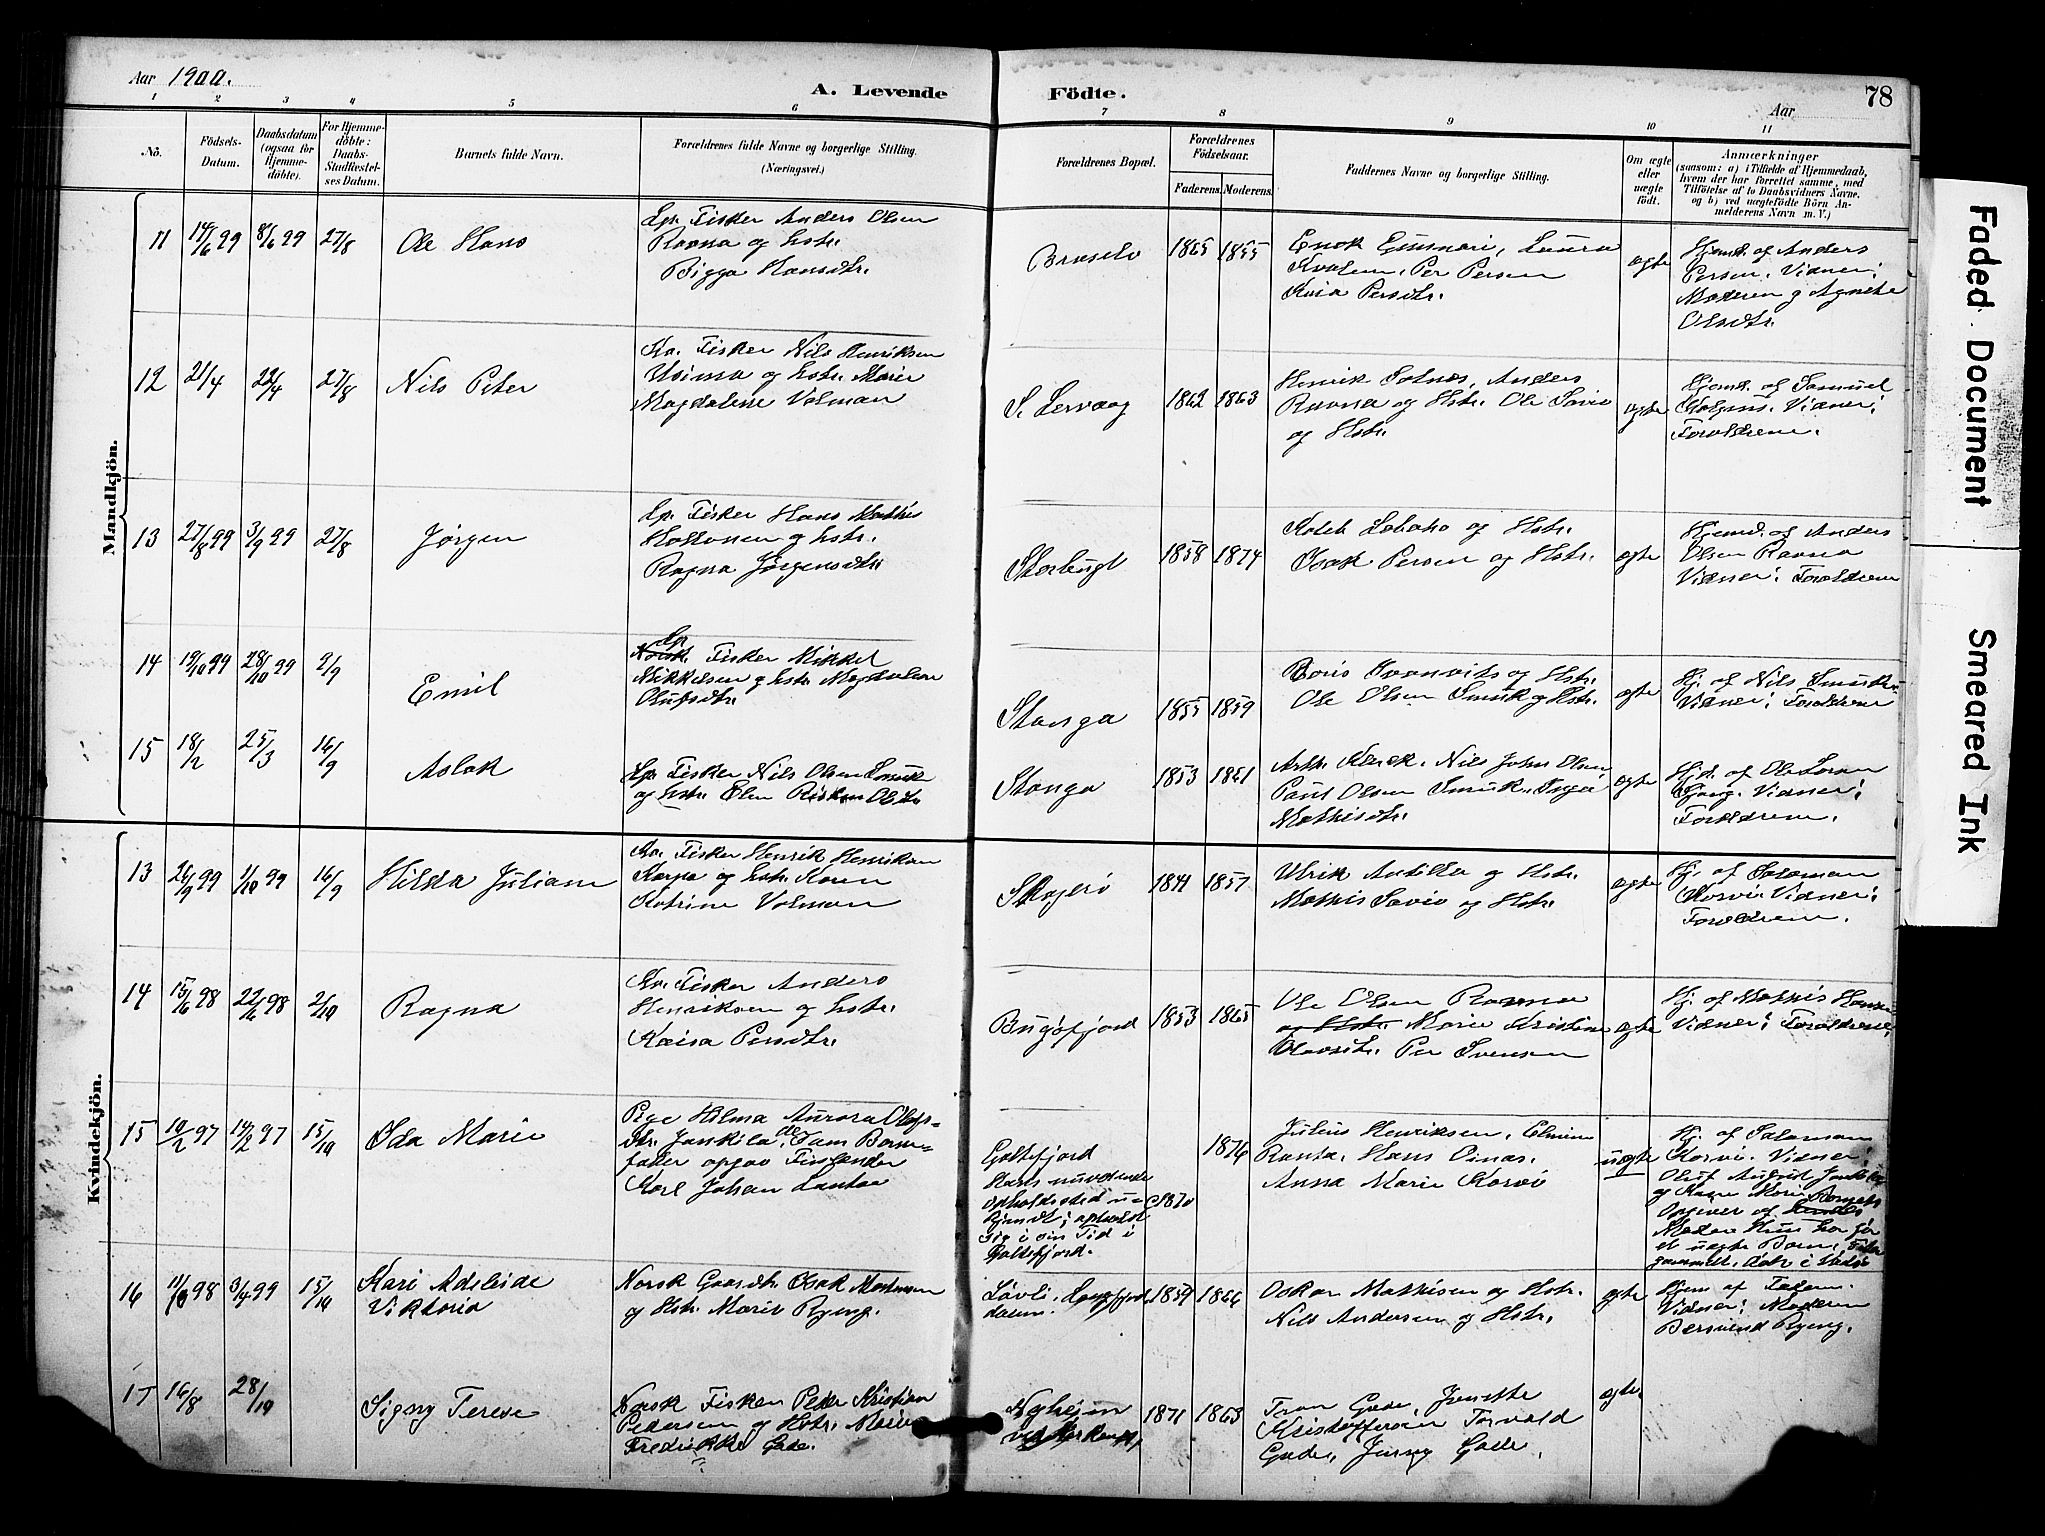 Aar 1900.
A. Levende
Födte.
Aar
78
1 2 3 4 5 6 7 8 9 10 11
No.
Födsels-
Datum.
Daabsdatum
(ogsaa for
Hjemme-
döbte).
For Hjemme-
döbte:
Daabs-
Stadfæstel-
ses Datum.
Barnets fulde Navn.
Forældrenes fulde Navne og borgerlige Stilling.
(Næringsvei.)
Forældrenes Bopæl.
Forældrenes
Födselsaar.
Faderens. Moderens.
Faddernes Navne og borgerlige Stilling.
Om ægte
eller
uægte
födt.
Anmærkninger
(saasom: a) i Tilfælde af Hjemmedaab,
hvem der har forrettet samme, med
Tilföielse af to Daabsvidners Navne.
og b) ved uægtefödte Börn An-
melderens Navn m. V.)
Mandkjön.
11 14/6 99 8/6 99 27/8
Ole Hans
Lp. Fisker Anders Olsen
Ravna og hstr.
Bigga Hansdtr.
Braselv
1865 1855
Enok Gunnari, Laura
Kvalem, Per Persen
Kaia Persdtr.
ægte
Hjemd. af Anders
Persen. Vidner:
Moderen g Agnete
Olsdtr.
12 21/4 22/4 27/8
Nils Peter
Kv. Fisker Nils Henriksen
Usinna og hstr. Marie
Magdalene Volman
S. Lervaag
1862 1863
Henrik Sotnes, Anders
Ravna og Hstr. Ole Savio
og Hstr.
ægte
Hjemd. af Samuel
Vidner:
Forældrene.
13 27/8 99 3/9 99 27/8
Jørgen
Lp. Fisker Hans Mathis
Hottonen g hstr.
Ragna Jørgensdtr.
Storbugt
1858 1874
Kaleb Labaha og Hstr.
Isak Persen og Hstr.
ægte
Hjemd. af Anders
Olsen Ravna
Vidner: Forældrene
14 19/10 99 28/10 99 2/9
Emil
Lp.
Norsk. Fisker Mikkel
Mikkelsen g hstr. Magdalene
Olufsdtr.
Stanga
1855 1859
Boris Ivanvits og Hstr.
Ole Olsen Smuk og Hstr.
ægte
Hj. af Nils Smuk.
Vidner: Forældrene
15 18/2 25/3 16/9
Aslak
Lp. Fisker Nils Olsen Smuk
og hstr. Elen
Stanga
1853 1861
Nils John Olsen,
Paul Olsen Smuk. Inga
Mathisdtr.
ægte
Hjd. af Ole Larsen
Vidner:
Forældrene.
Kvindekjön.
13 26/9 99 1/10 99 16/9
Hilda Juliane
Kv. Fisker Henrik Henriksen
Karpa og hstr. Karen
Katrine Volman
Skogerø
1841 1857
Ulrik Antilla og Hstr.
Mathis Savio og Hstr.
ægte
Hj. af Salomon
Korvi. Vidner:
Forældrene.
14 15/6 98 22/6 98 2/10
Ragna
Kv. Fisker Anders
Henriksen og hstr.
Kaisa Persdtr.
Bugøfjord
1853 1865
Ole Olsen Ravna
og Hstr. Marie Kristine
Per Svensen
ægte
Hj. af Mathis Hansen
Vidner: Forældrene.
15 10/2 97 14/2 97 15/10
Ida Marie
Pige Hilma Aurora Olafs-
dtr. Jankila, Som Barne-
fader opgav Finlænder
Karl Johan Lantoe
Goltefjord
Hans nuværende
Opholdssted u-
kjendt; opholdt
sig i sin Tid i
Goltefjord.
1870 1876
Julius Henriksen,
Ranta, Hans Oinas.
Anna Marie Korvi
uægte
Hj. af Salomon
Korvi. Vidner:
Oluf August
og Karen Marie
Opgiver af
Moder. Hun har før
et uægte Barn. Fader
16 11/8 98 3/4 99 15/10
Kari Adelide
Viktoria
Norsk Gaardbr. Isak Mortensen
og Hstr. Marie Ryeng.
Løvli,
dalen.
1859 1866
Oskar Mathisen og Hstr.
Nils Andersen og Hstr.
ægte
Hjem af Faderen.
Vidner: Moderen
Bersvend Ryeng.
17 16/8 28/10
Signy Terese
Norsk Fisker Peter Kristian
Pedersen og Hstr. Marie
Fredrikke Gade.
Nyheim
1871 1863
Tron Gade, Jenette
Kristoffersen Torvald
Gade, Jenny Gade.
ægte
Faded Document
Smeared Ink